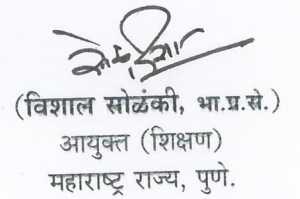 (विशाल सोळंकी, भा.प्र.से.)
आयुक्त (शिक्षण)
महाराष्ट्र राज्य, पुणे.